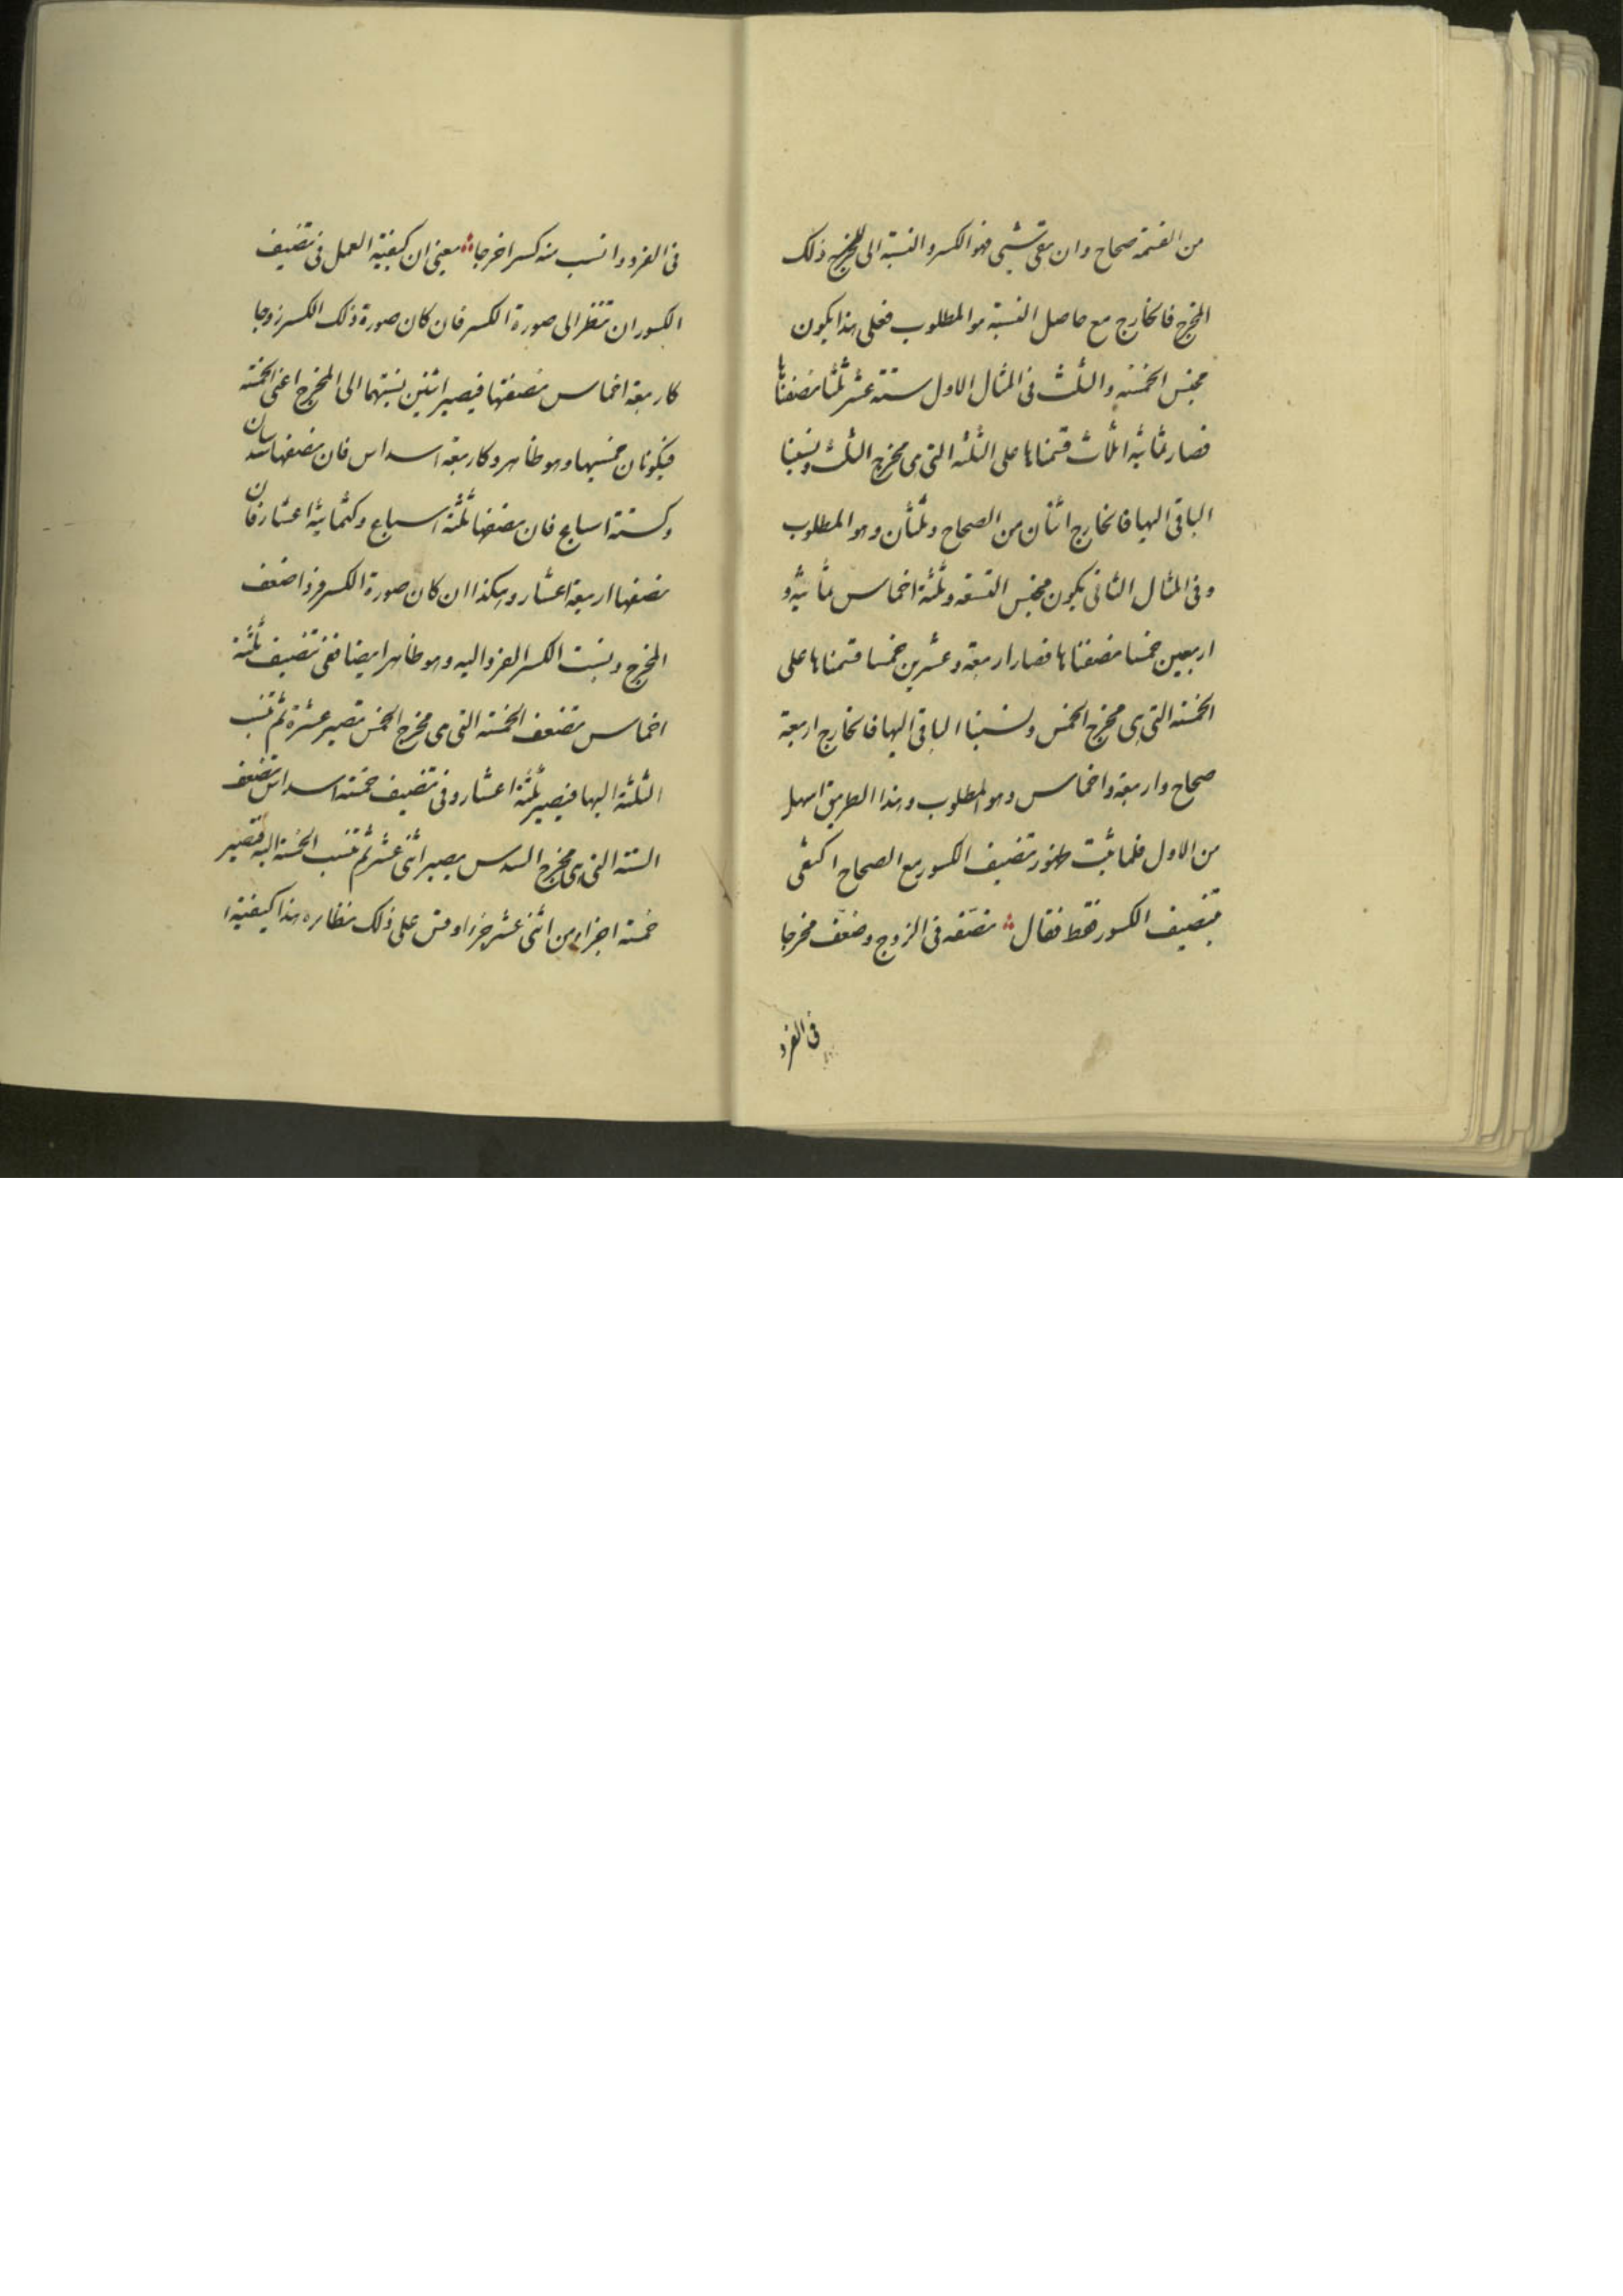 من القسمة صحاح وان بقي شيئ فهو الكسر والنسبة الى مخرج ذلك
المخرج فالخارج مع حاصل النسبة هو المطلوب فعلى هذا يكون
مجنس الخمسة والثلث فى المثال الاول ستة عشر ثلثا نصفناها
فصار ثمانية اثلاث قسمناها على الثلثة التى هى مخرج الثلث ونسبنا
الباقى اليها فالخارج اثنان من الصحاح وثلثان وهو المطلوب
وفى المثال الثانى يكون مجنس التسعة وثلثة اخماس ثمانية و
اربعين خمسا نصفناها فصار اربعة وعشرين خمسا قسمناها على
الخمسة التى هى مخرج الخمس ونسبنا الباقى اليها فالخارج اربعة
صحاح واربعة اخماس وهو المطلوب وهذا الطريق اسهل
من الاول فلما ثبت ظهور تنصيف الكسور مع الصحاح اكتفى
بتنصيف الكسور فقط فقال نصّفه فى الزوج وضعّف مخرجا
فى الفرد
فى الفرد وانسب منه كسرا خرجا يعنى ان كيفية العمل فى تنصيف
الكسور ان تنظر الى صورة الكسر فان كان صورة ذلك الكسر زوجا
كاربعة اخماس نصفتها فيصير اثنين نسبتهما الى المخرج اعنى الخمسة
فيكونان خمسيها وهو ظاهر وكاربعة اسداس فان نصفها سدسان
وكستة اسباع فان نصفها ثلثة اسباع وكثمانية اعشار فان
نصفها اربعة اعشار وهكذا ان كان صورة الكسر فردا ضعف
المخرج ونسبت الكسر الفرد اليه وهو ظاهر ايضا ففى تنصيف ثلثة
اخماس تضعف الخمسة التى هى مخرج الخمس تصير عشرة ثم تنسب
الثلثة اليها فيصير ثلثة اعشار وفى تنصيف خمسة اسداس تضعف
الستة التى هى مخرج السدس يصير اثنى عشر ثم تنسب الخمسة اليه فتصير
خمسة اجزاء من اثنى عشر جزءا وقس على ذلك نظائره هذا كيفية